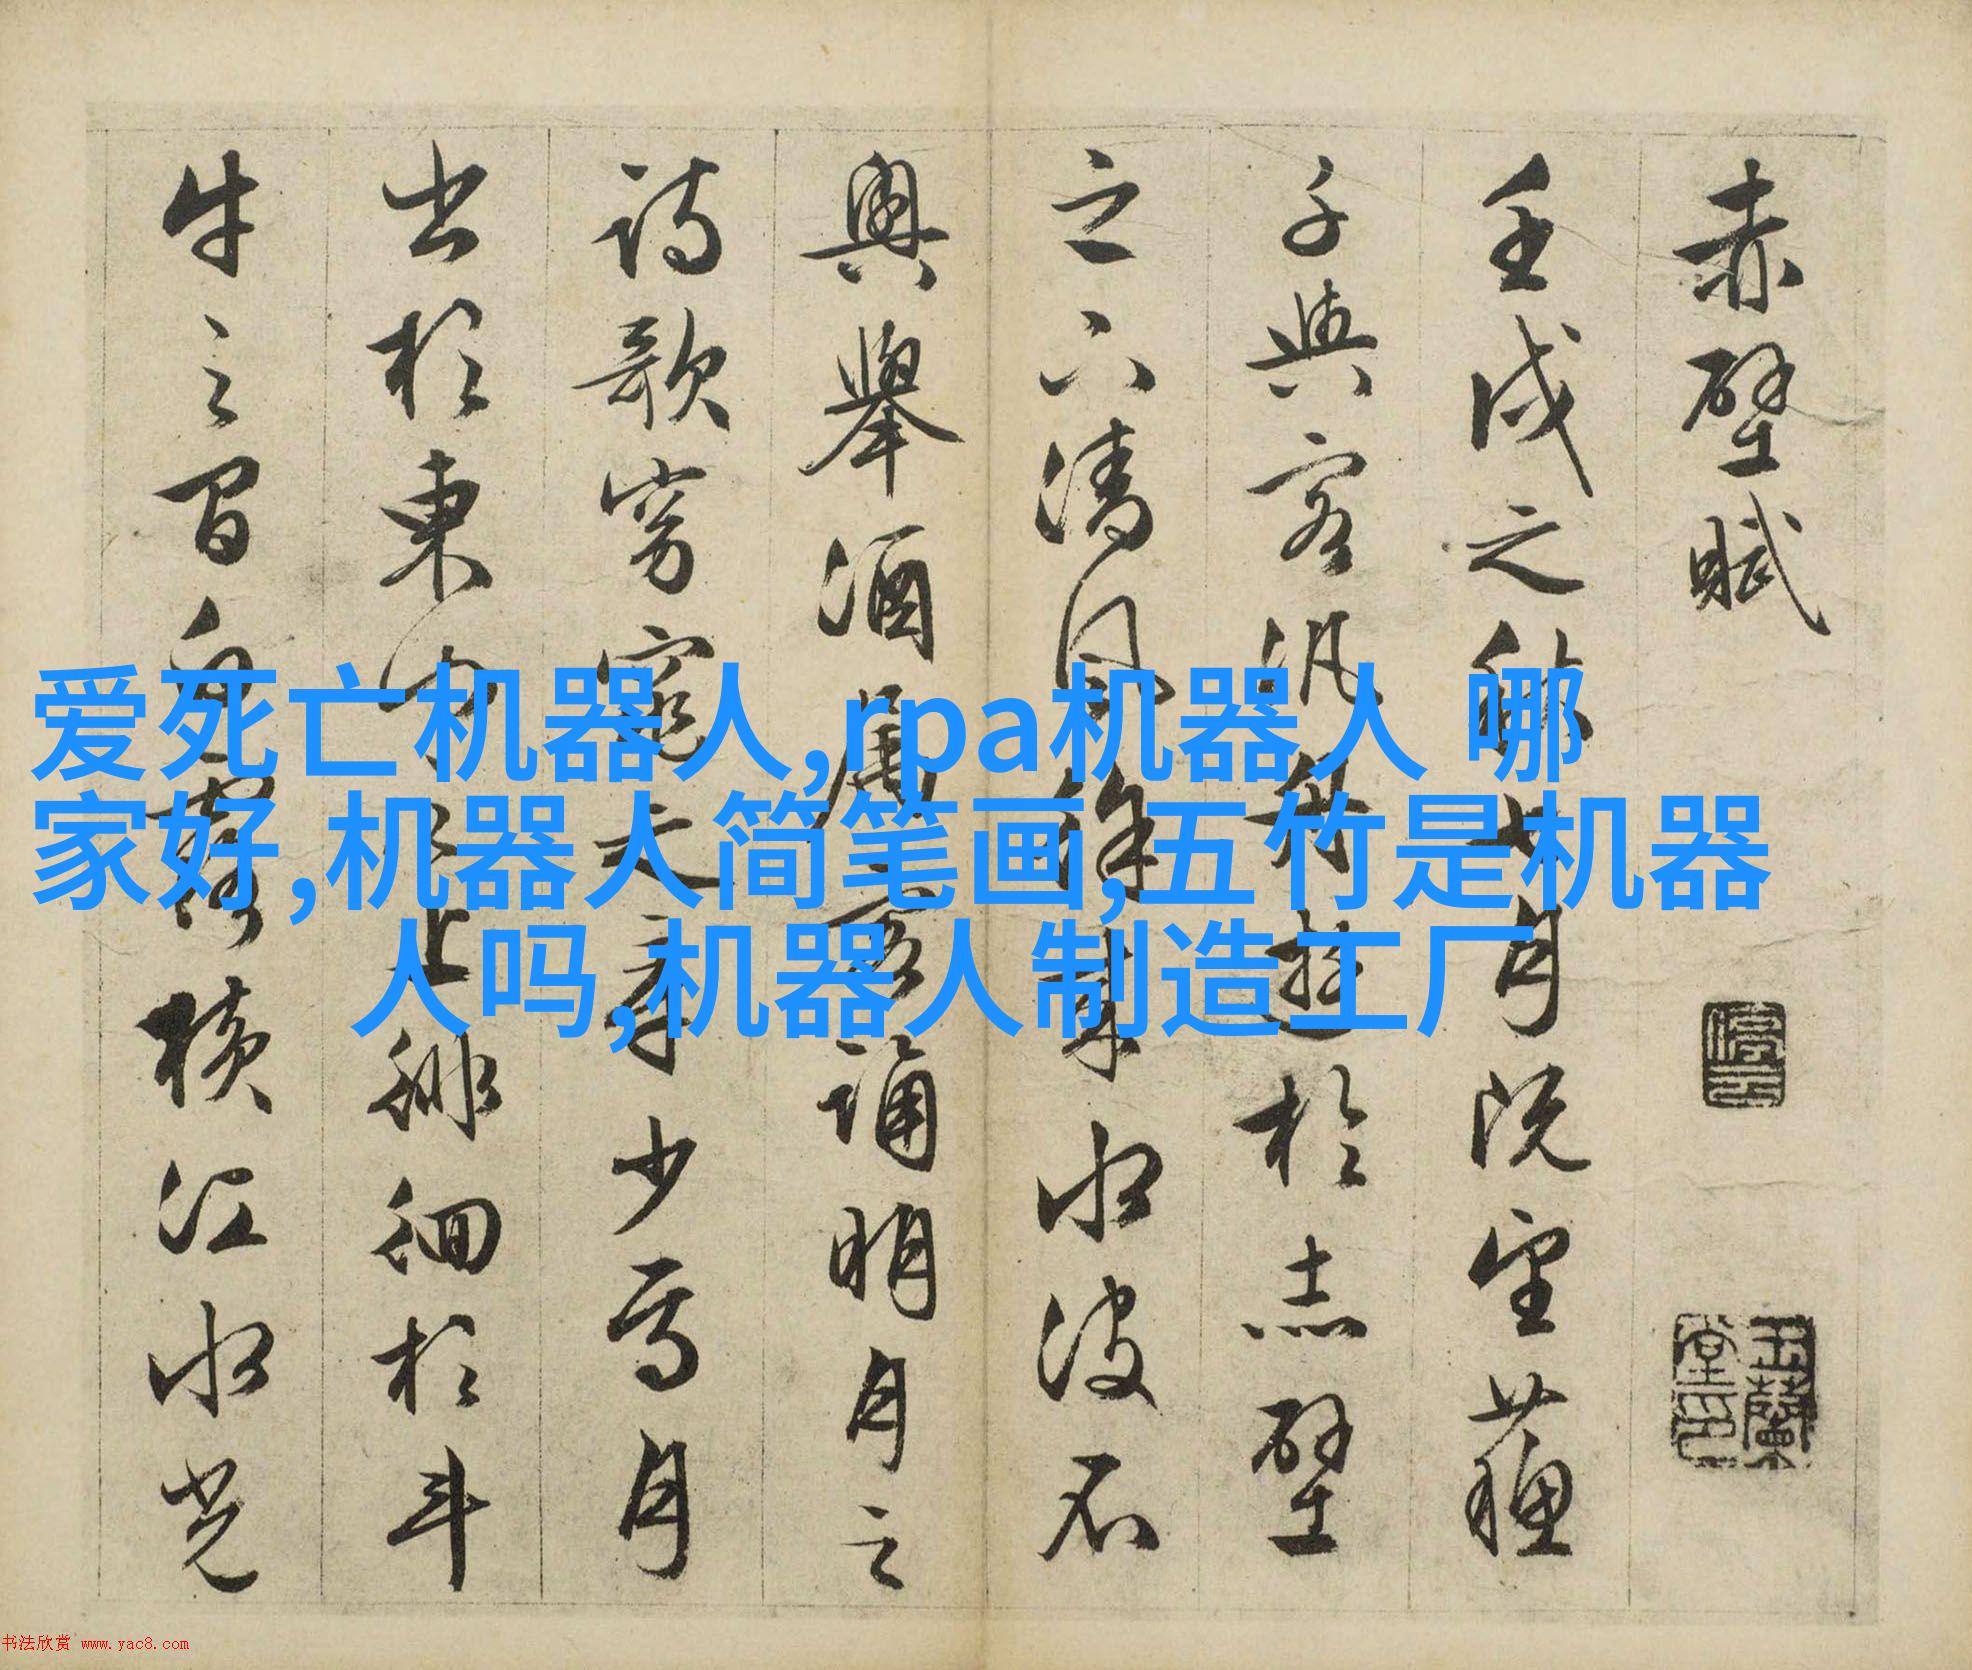 赤壁賦
壬戌之秋七月既望蘇
子與客汎舟遊於赤壁
之下清風徐來水波不
興舉酒屬客誦明月之
詩歌窈窕之章少焉月
出於東山之上徘徊於斗
牛之間白露橫江水光
玉蘭堂印
爱死亡机器人,rpa机器人 哪
家好,机器人简笔画,五竹是机器
人吗,机器人制造工厂
书法欣赏 www.yac8.com